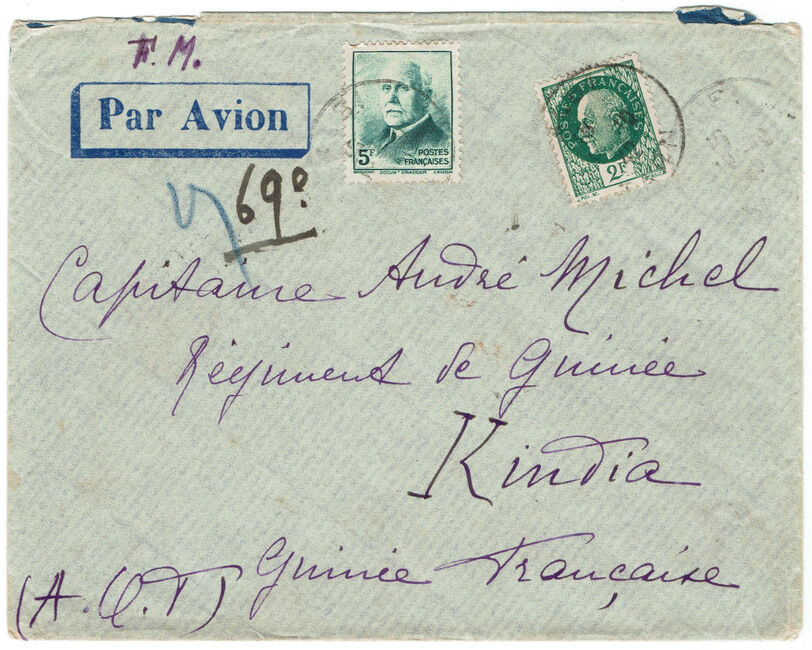 F. M.
Par Avion
5F
POSTES
FRANÇAISES
POSTES FRANÇAISES
2F
69º
Capitaine André Michel
Régiment de Guinée
Kindia
Guinée Française
(A.O.F)